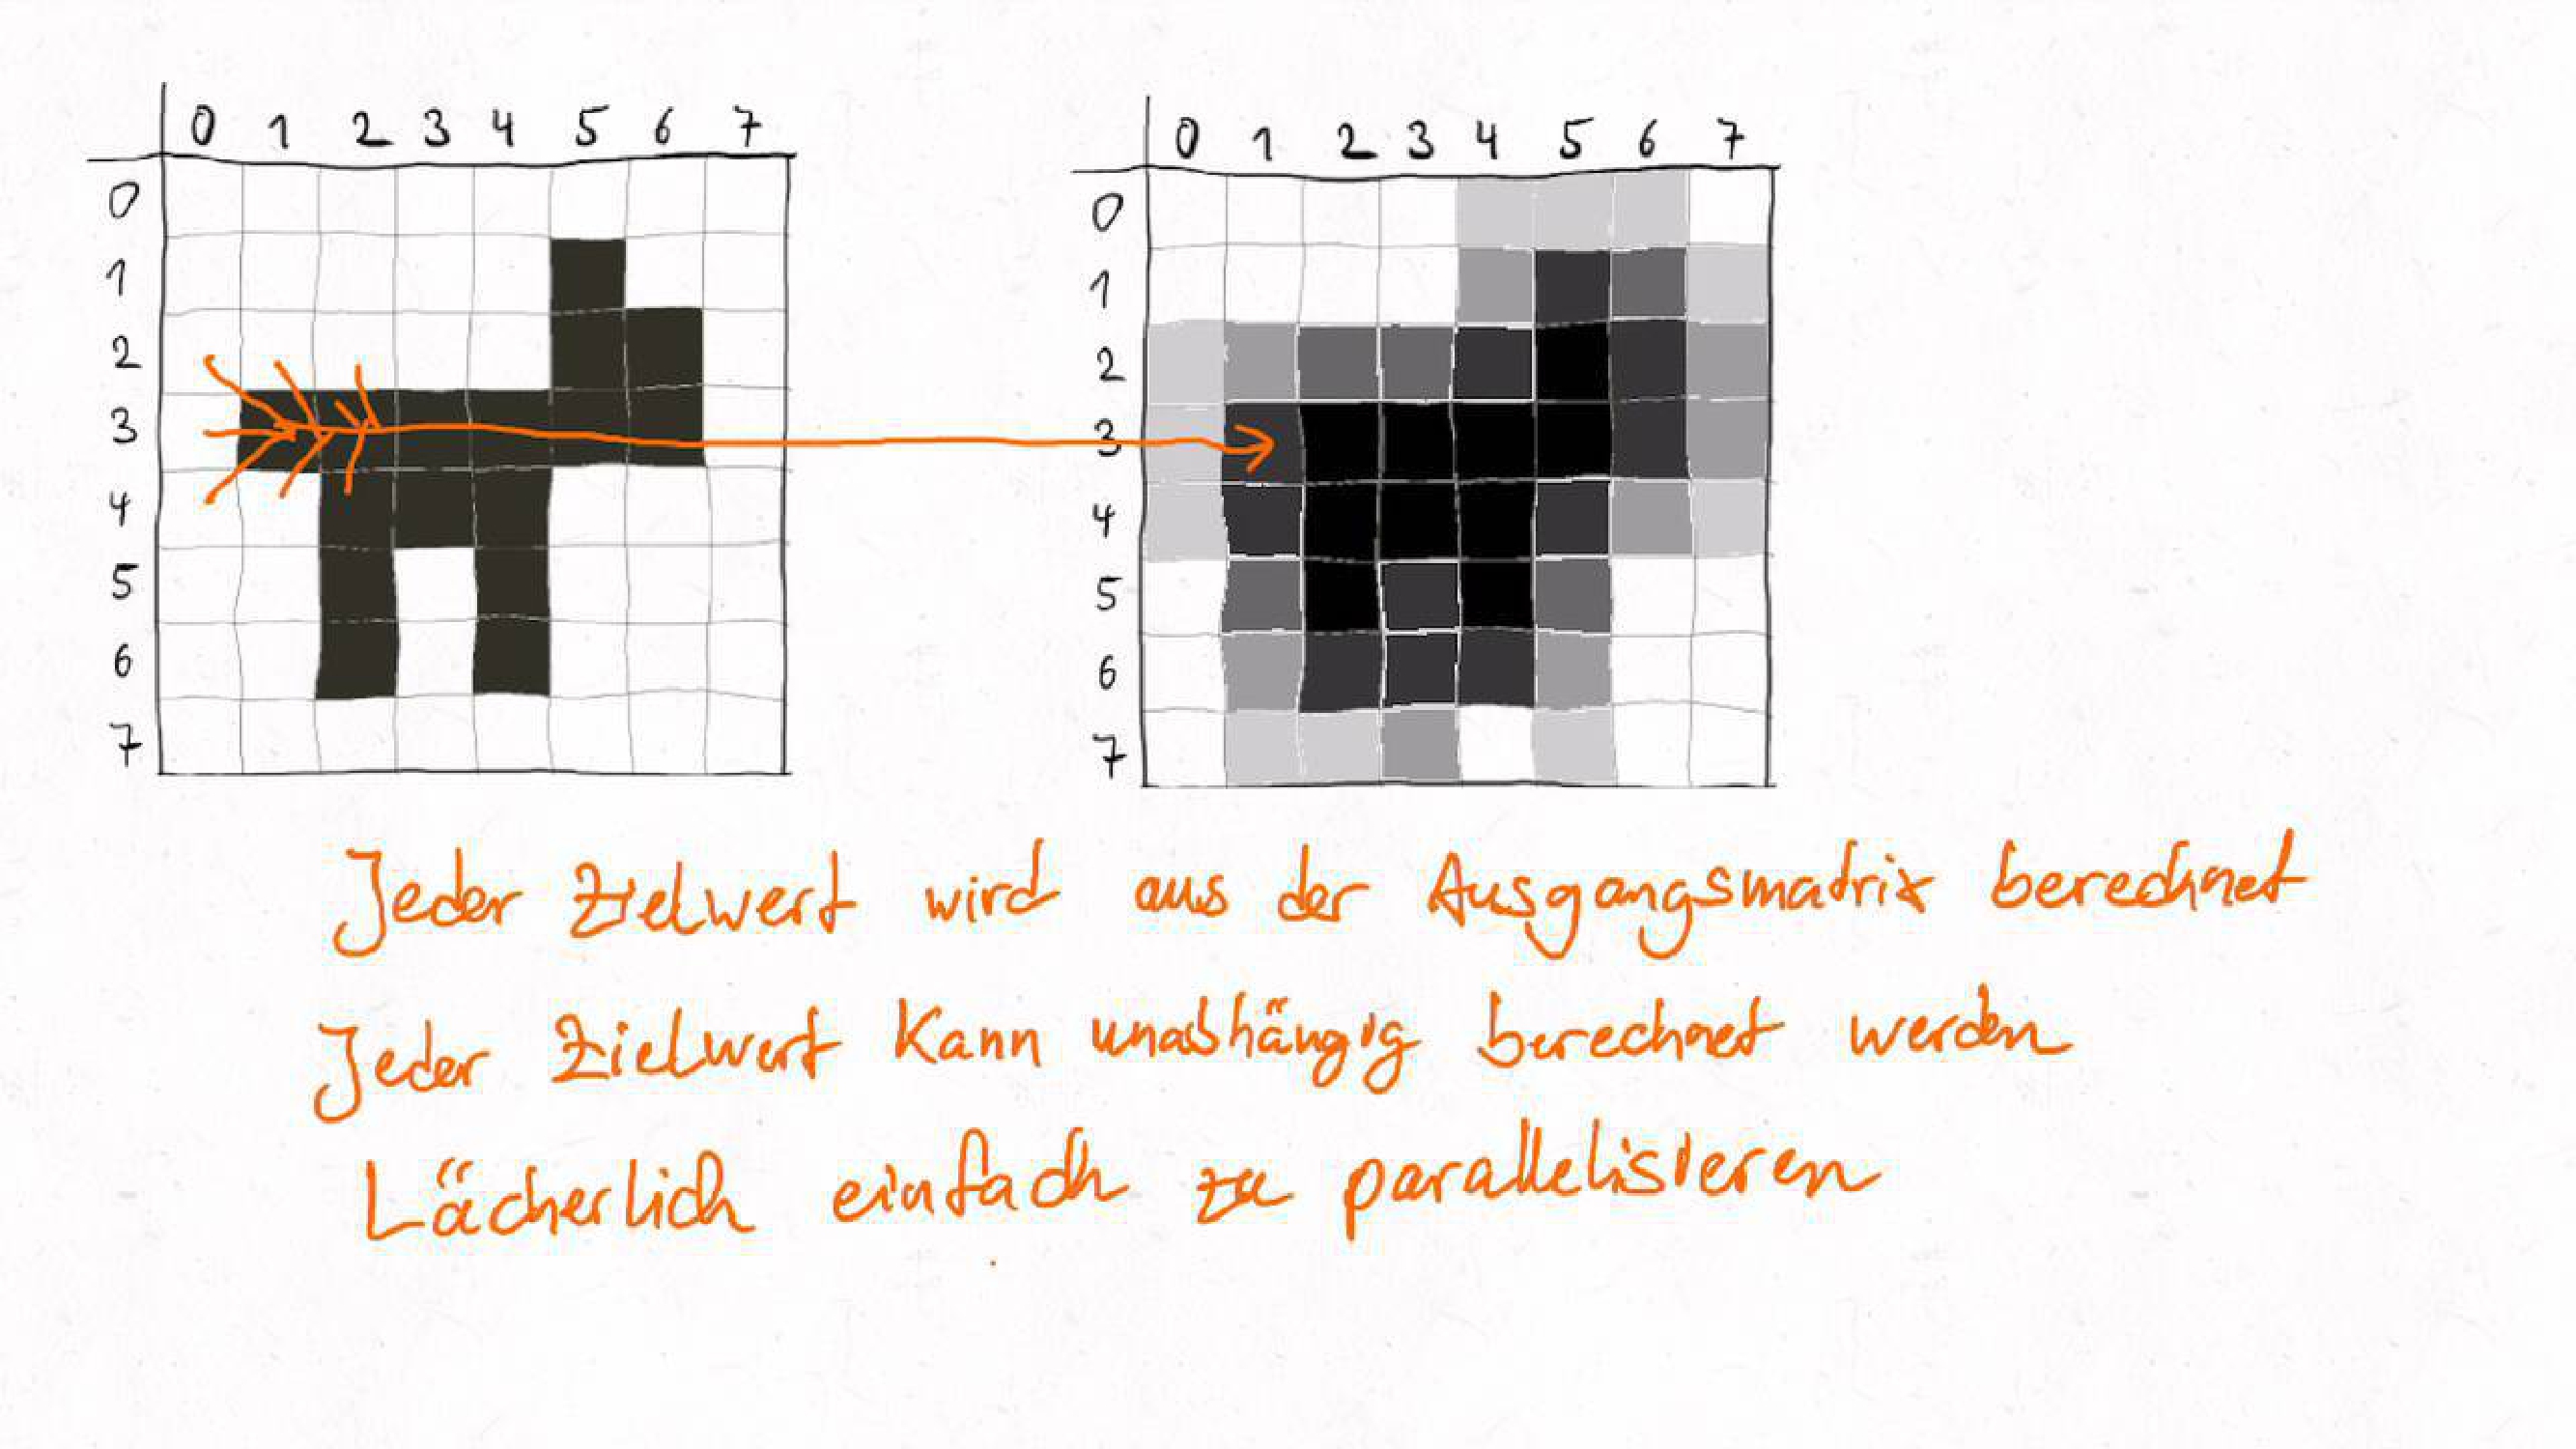 0 1 2 3 4 5 6 7
0
1
2
3
4
5
6
7
0 1 2 3 4 5 6 7
0
1
2
3
4
5
6
7
Jeder Zielwert wird aus der Ausgangsmatrix berechnet
Jeder Zielwert kann unabhängig berechnet werden
Lächerlich einfach zu parallelisieren